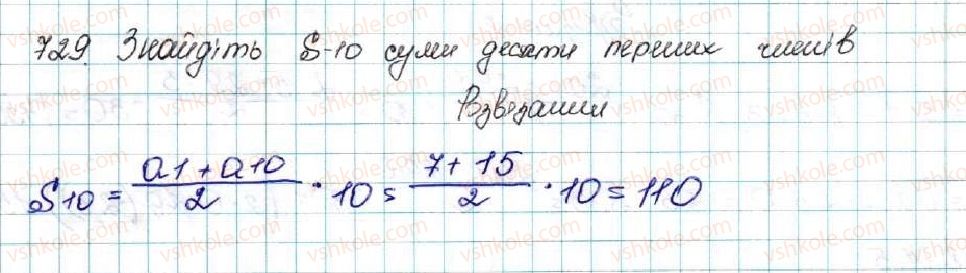 729. Знайдіть S-10 суми десяти перших членів
Розв'язання
S10 = a1 + a10 / 2 · 10 = 7 + 15 / 2 · 10 = 110